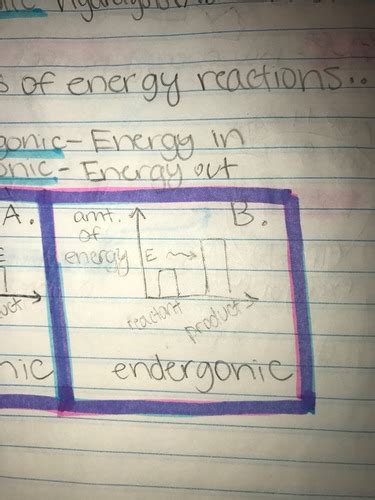 s of energy reactions..
gonic - Energy in
onic - Energy out
A. amt. B.
of
E energy E
uct reactant product
nic endergonic